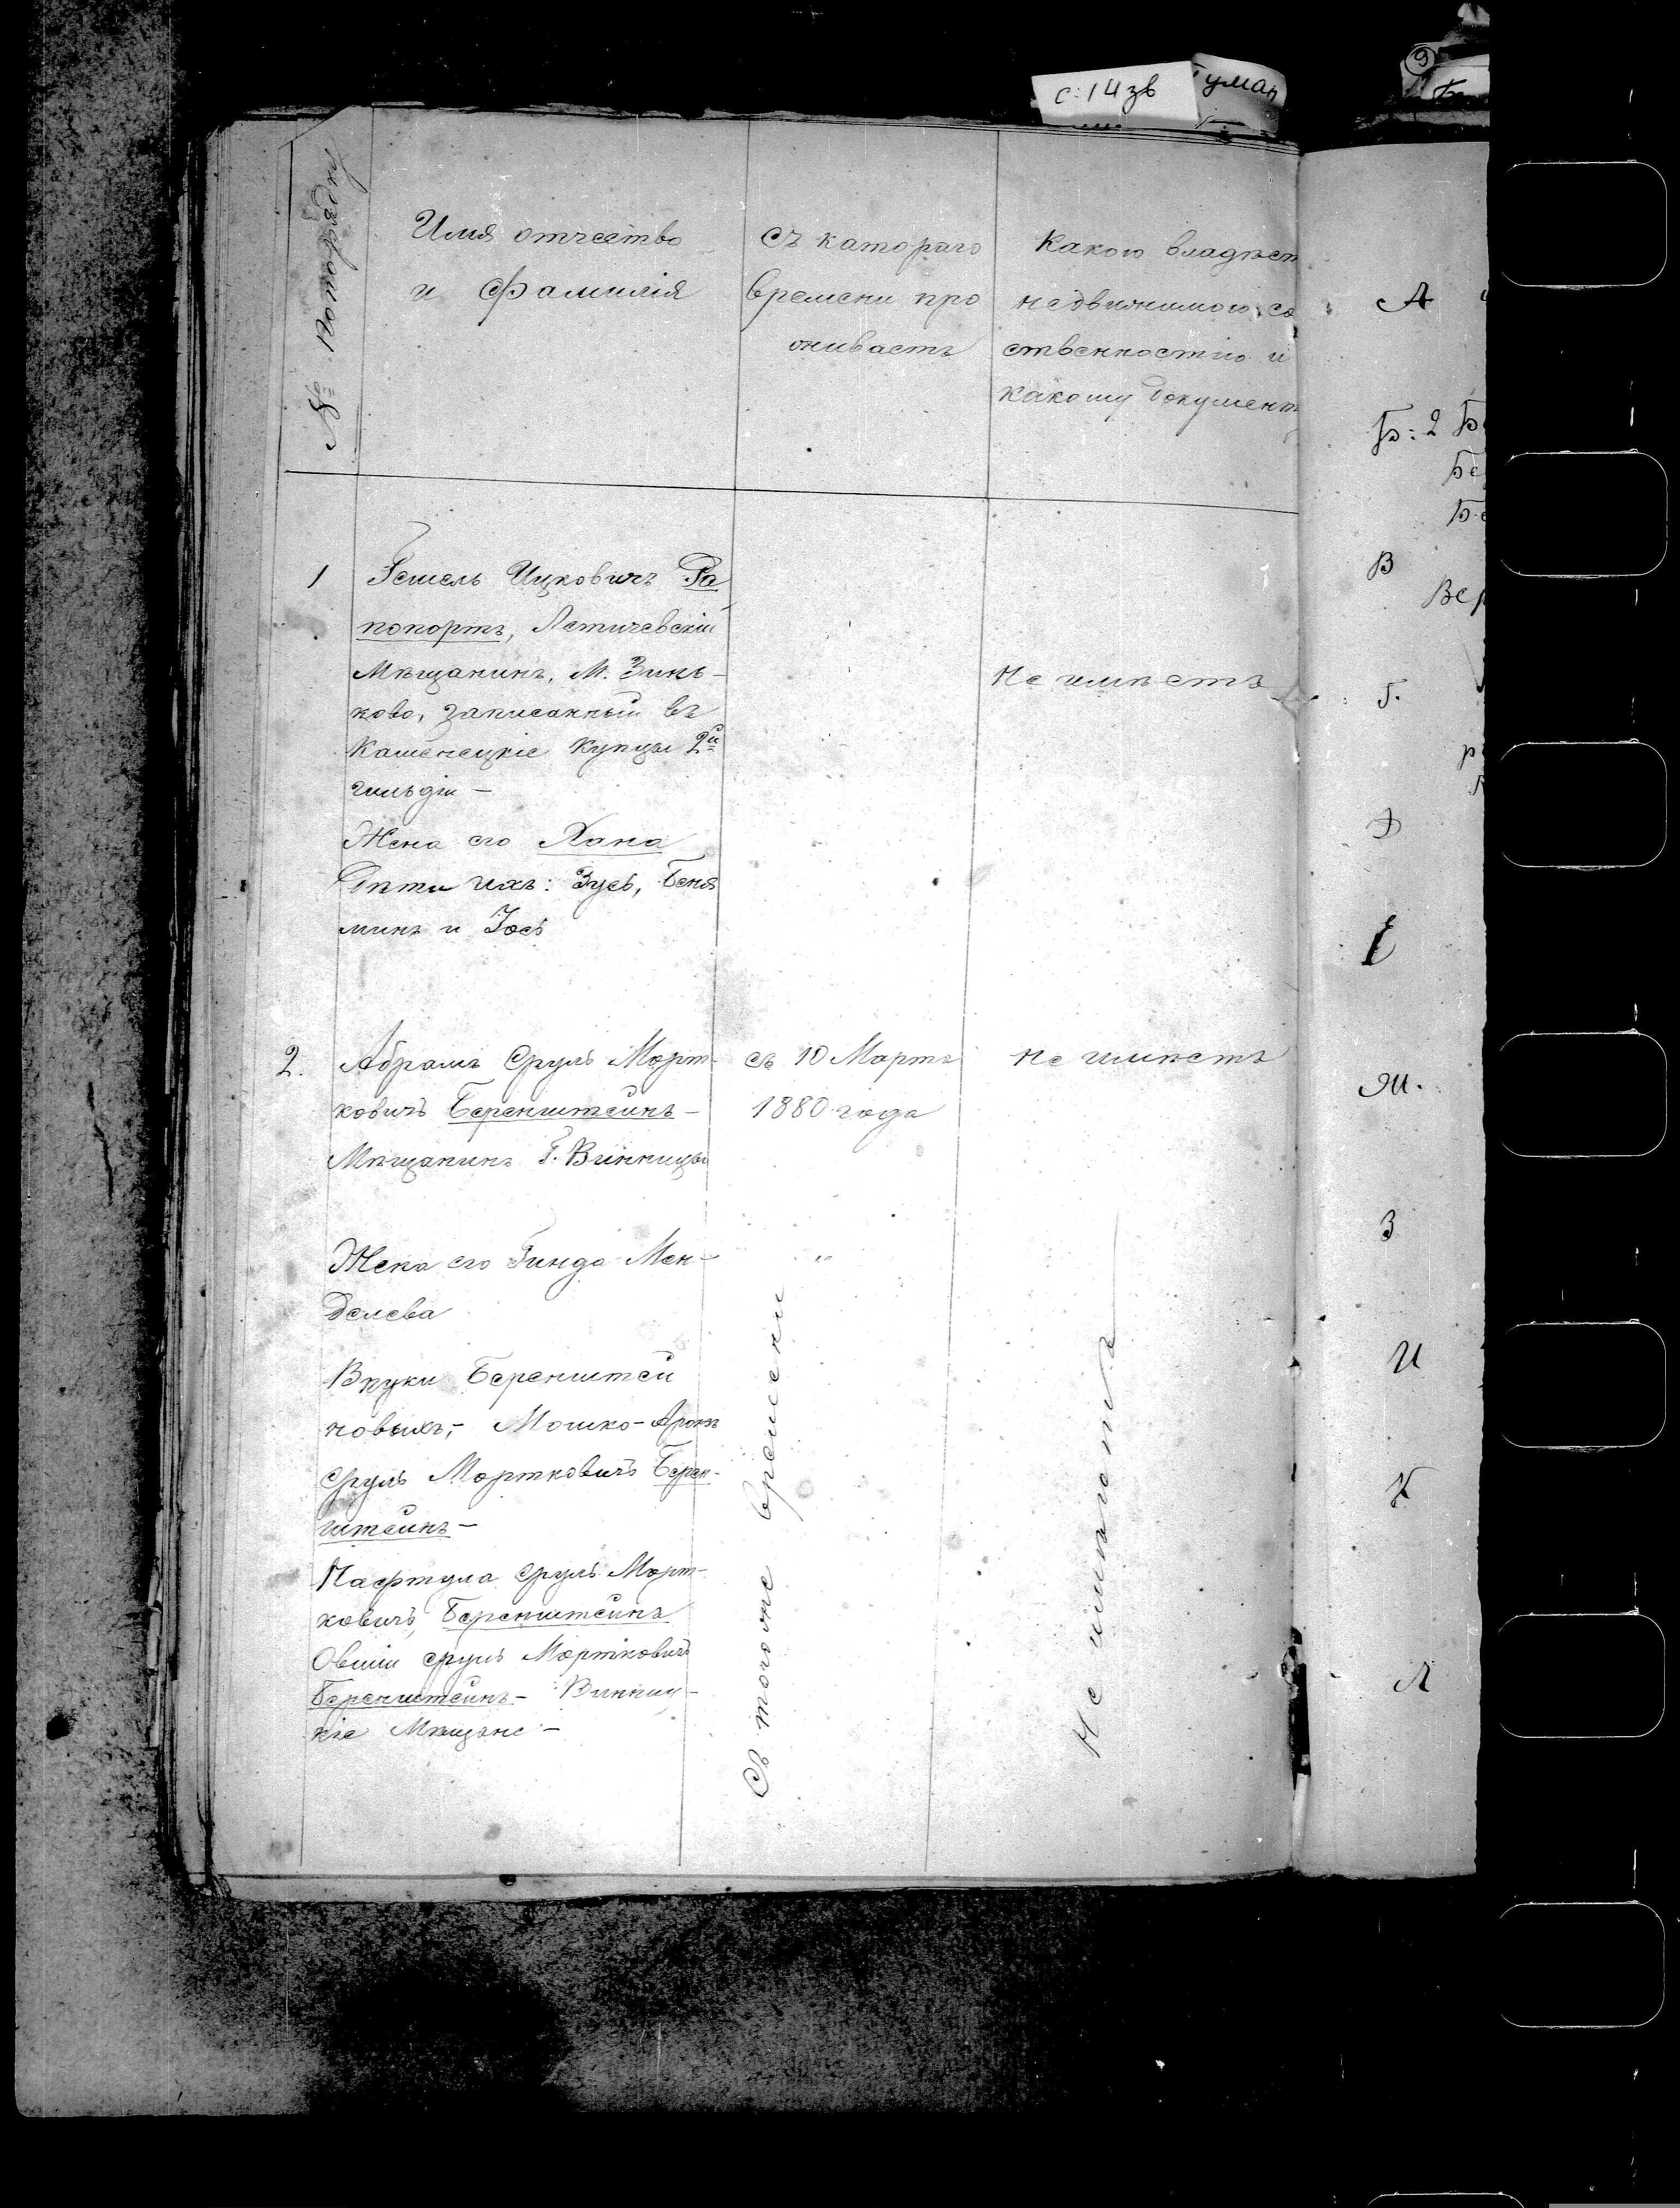 с: 14 зв
Туман
9
№ По порядку
Имя отчество
и Фамилія
Съ катораго
времени про
живаетъ
Какою владѣет
недвижимою со
ственностію и
какому документ
1
Гешель Ицковичъ Ра
попортъ, Летичевскій
Мѣщанинъ, М. Зинь-
ково, записанный въ
Каменецкіе купцы 2й
гильдіи -
Жена его Хана
Дѣти ихъ: Зусь, Беня
минъ и Іось
Не имѣетъ
2.
Абрамъ Сруль Морт-
ковичъ Беренштейнъ -
Мѣщанинъ Г. Винницы
съ 10 Марта
1880 года
не имѣетъ
Жена его Гинда Мен-
делева
"
Внуки Беренштей
новыхъ, - Мошко-Аронъ
Сруль Мортковичъ Берен-
штейнъ -
Нафтула Сруль Морт-
ковичъ Беренштейнъ
Овшій Сруль Мортковичъ
Беренштейнъ - Винниц-
кіе Мѣщане -
Съ тогоже времени
Не имѣютъ
А
Б: 2 Б
Бе
Бе
В
Вер
Г.
Д
Е
Ж.
З
И
К
Л